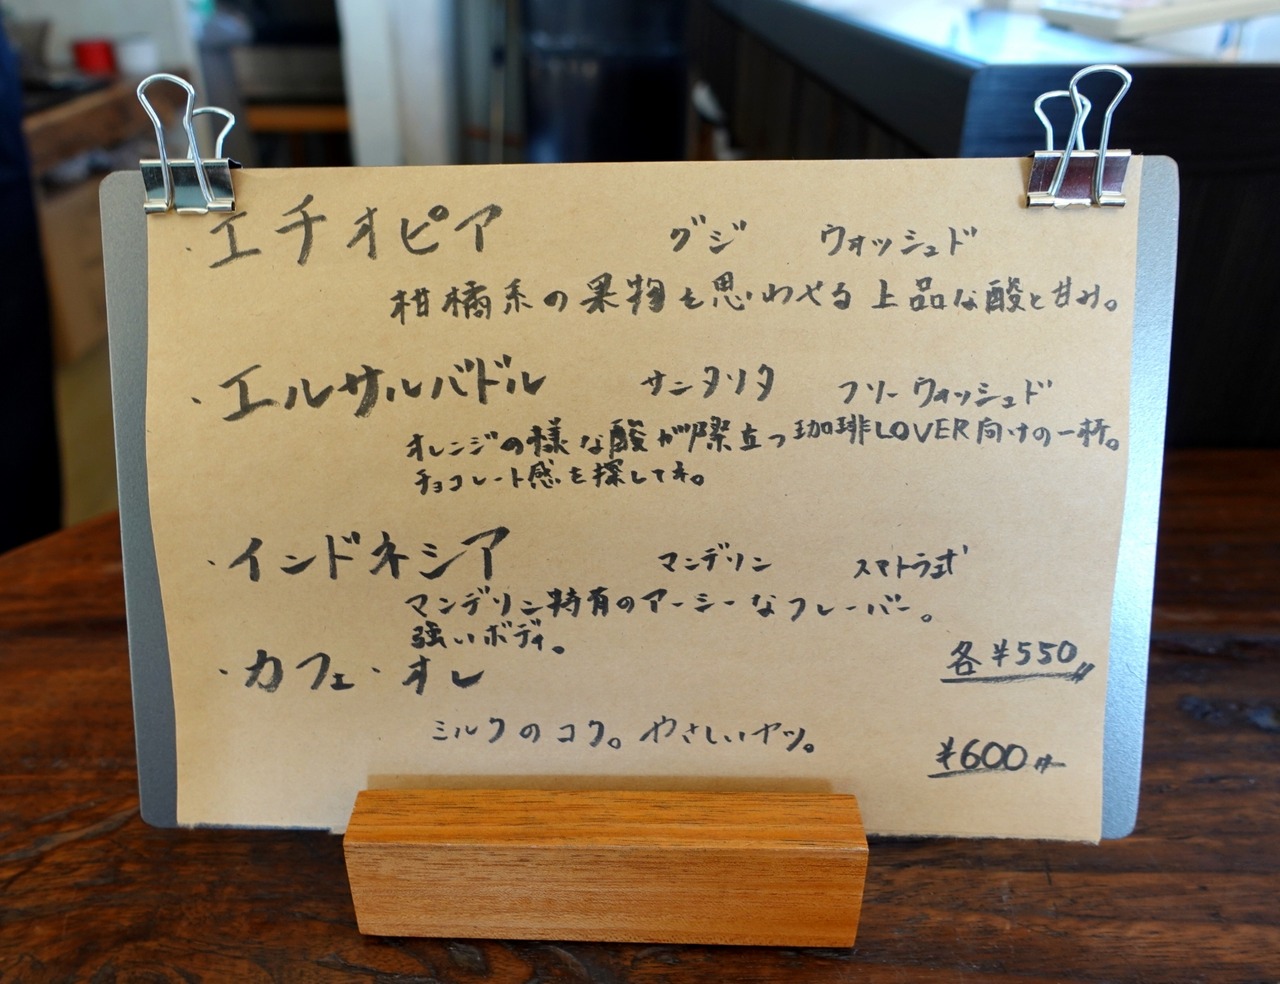 ・エチオピア グジ ウォッシュド
柑橘系の果物を思わせる上品な酸と甘み。
・エルサルバドル サンタリタ フリーウォッシュド
オレンジの様な酸が際立つ珈琲LOVER向けの一杯。
チョコレート感を探してネ。
・インドネシア マンデリン スマトラ式
マンデリン特有のアーシーなフレーバー。
強いボディ。
各¥550
・カフェ・オレ
ミルクのコク。やさしいヤツ。
¥600